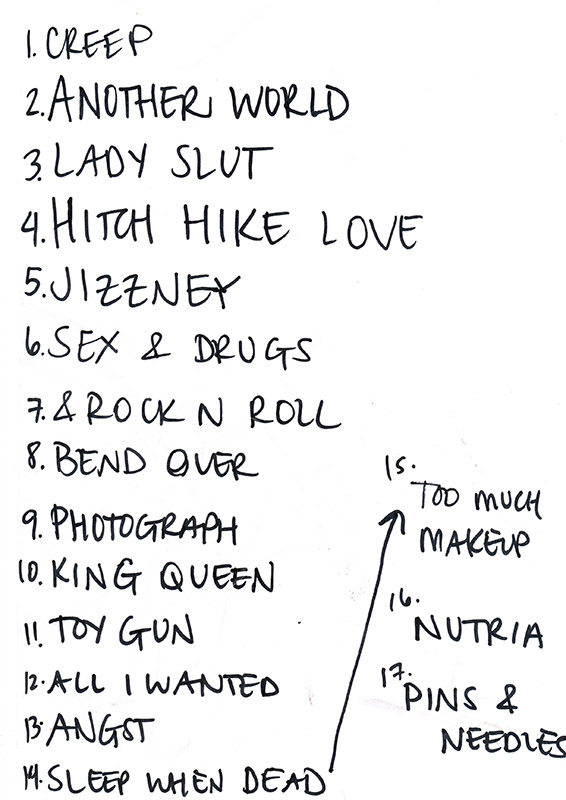 1. CREEP
2. ANOTHER WORLD
3. LADY SLUT
4. HITCH HIKE LOVE
5. JIZZNEY
6. SEX & DRUGS
7. & ROCK N ROLL
8. BEND OVER
9. PHOTOGRAPH
10. KING QUEEN
11. TOY GUN
12. ALL I WANTED
13. ANGST
14. SLEEP WHEN DEAD
15.
TOO MUCH
MAKEUP
16.
NUTRIA
17.
PINS &
NEEDLES